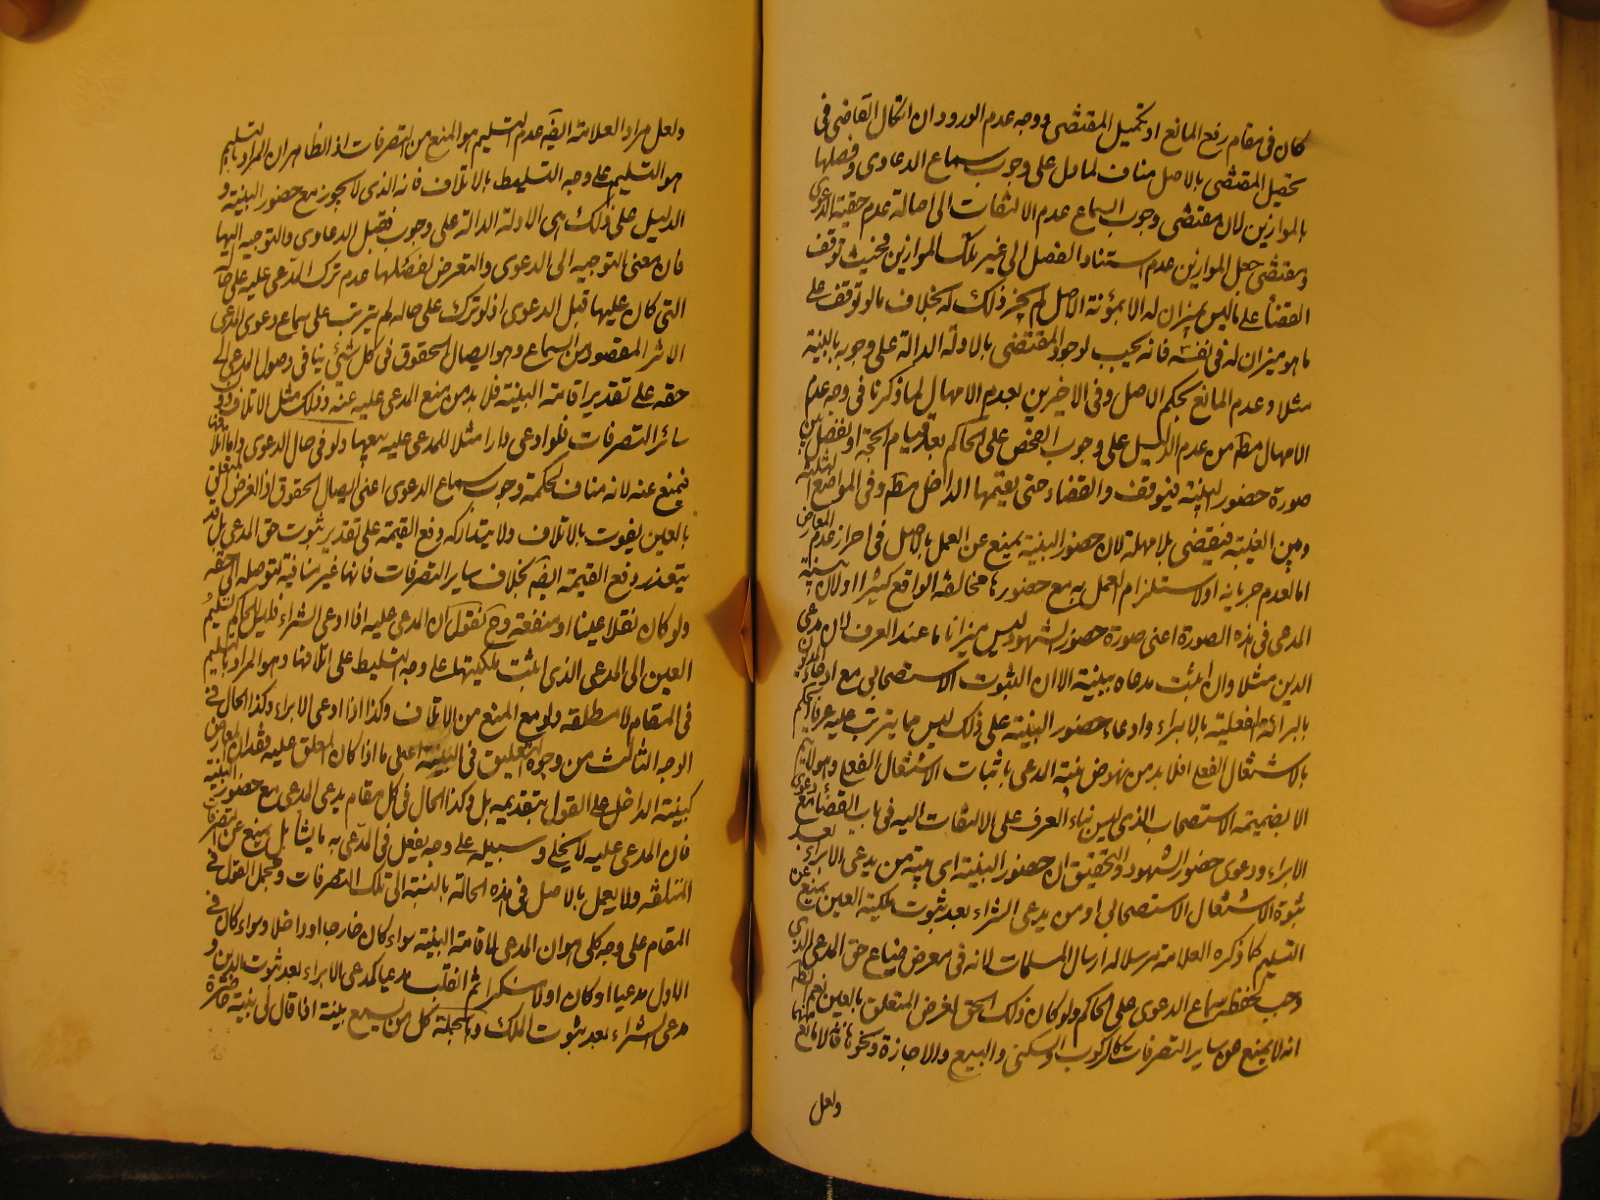 كان فى مقام رفع المانع او تكميل المقتضى ووجه عدم الورود ان اتكال القاضى فى
تحصيل المقتضى بالاصل مناف لما دل على وجوب سماع الدعاوى وفصلها
بالموازين لان مقتضى وجوب السماع عدم الالتفات الى اصالة عدم حقية الدعوى
ومقتضى جعل الموازين عدم استناد الفصل الى غير تلك الموازين فحيث توقف
القضاء على ما ليس بميزان له الا بمؤنة الاصل لم يجز ذلك له بخلاف ما لو توقف على
ما هو ميزان له فى نفسه فانه يجب لوجود المقتضى بالادلة الدالة على وجوبه بالبينة
مثلا وعدم المانع بحكم الاصل وفى الاخيرين بعدم الامهال لما ذكرنا فى وجه عدم
الامهال مطم من عدم الدليل على وجوب الفحص على الحاكم بعد قيام الحجة او بفصل بين
صورة حضور البينة فيتوقف والقضاء حتى يقيمها الداخل مطم وفى المواضع الثلثة
وبين الغيبة فيقضى بلا مهلة لان حضور البينة يمنع عن العمل بالاصل فى احراز عدم المعارض
اما لعدم جريانه او لاستلزام العمل به مع حضورها مخالفة الواقع كثيرا او لان بينة
المدعى فى هذه الصورة اعنى صورة حضور الشهود ليس ميزانا ما عند العرف لان مدعى
الدين مثلا وان اثبت مدعاه ببينة الا ان الثبوت الاستصحابى مع ادعاء المديون
بالبرائة الفعلية بالابراء وادعاء حضور البينة على ذلك ليس مما يترتب عليه عرفا الحكم
بالاشتغال الفعلى فلا بد من نهوض بينة المدعى باثبات الاشتغال الفعلى وهو لا يتم
الا بضميمة الاستصحاب الذى ليس بناء العرف على الالتفات اليه فى باب القضاء مع دعوى
الابراء ودعوى حضور الشهود والتحقيق ان حضور البينة اى بينة من يدعى الابراء بعد
ثبوت الاشتغال الاستصحابى او من يدعى الشراء بعد ثبوت ملكية العين يمنع عن
التسليم كما ذكره العلامة مرسلا له ارسال المسلمات لانه فى معرض ضياع حق المدعى الذى
وجب حفظه سماع الدعوى على الحاكم ولو كان ذلك الحق لغرض المتعلق بالعين نعم الظ
انه لا يمنع عن ساير التصرفات كالركوب والسكنى والبيع والاجارة ونحوها فالا مانع منها
ولعل
ولعل مراد العلامة ايضه عدم التسليم هو المنع من التصرفات اذ الظاهر ان المراد بالتسليم
هو التسليم على وجه التسليط بالاتلاف فانه الذى لا يجوز مع حضور البينة و
الدليل على ذلك هى الادلة الدالة على وجوب فصل الدعاوى والتوجيه اليها
فان معنى التوجيه الى الدعوى والتعرض لفصلها عدم ترك المدعى عليه على حاله
التى كان عليها قبل الدعوى اذ لو ترك على حاله لم يترتب على سماع دعوى المدعى
الاثر المقصود من السماع وهو ايصال الحقوق فى كل شئ ينافى وصول المدعى الى
حقه على تقدير اقامة البينة فلا بد من منع المدعى عليه عنه وذلك مثل الاتلاف دون
سائر التصرفات فلو ادعى دارا مثلا للمدعى عليه بيعها ولو فى حال الدعوى واما اتلافها
فيمنع عنه لانه مناف لحكمة وجوب سماع الدعوى اعنى ايصال الحقوق اذ الغرض المتعلق
بالعين يفوت بالاتلاف ولا يتداركه دفع القيمة على تقدير ثبوت حق المدعى بل قد
يتعذر دفع القيمة ايضه بخلاف ساير التصرفات فانها غير منافية لتوصله الى حقه
ولو كان نقلا عينا او منفعة وح نقول ان المدعى عليه اذا ادعى الشراء فليس للحاكم تسليم
العين الى المدعى الذى اثبت ملكيتها على وجه التسليط على اتلافها وهو المراد بالتسليم
فى المقام لا مطلقه ولو مع المنع من الاتلاف وكذا اذا ادعى الابراء وكذا الحال فى
الوجه الثالث من وجوه التعليق فى البينة اعنى ما اذا كان المعلق عليه فقدان المعارض
كبينة الداخل على القول بتقديمه بل وكذا الحال فى كل مقام يدعى المدعى مع حضور البينة
فان المدعى عليه لا يخلى وسبيله على وجه يفعل فى المدعى به ما يشاء بل يمنع عن التصرفات
المتلفة ولا يعمل بالاصل فى هذه الحالة بالنسبة الى تلك التصرفات ومجمل القول فى
المقام على وجه كلى هو ان المدعى لاقامة البينة سواء كان خارجا او داخلا وسواء كان فى
الاول مدعيا او كان اولا منكرا ثم انقلب مدعيا كمدعى الابراء بعد ثبوت الدين و
مدعى الشراء بعد ثبوت الملك وبالجملة كل من يسمع بينة اذا قال لى بينة حاضرة